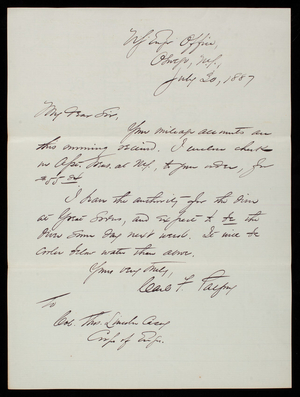 US Engr Office,
Oswego, N.Y.,
July 20, 1887
My Dear Sir,
Your mileage accounts are
this morning received. I enclose check
on Asst. Treas. at N.Y. to your order, for
I have the authority for the
at Great and expect to be
some day next week. It will be
cooler below water than above.
Yours very truly,
Carl F. Palfrey
To
Col. Thos. Lincoln Casey
Corps of Engrs.